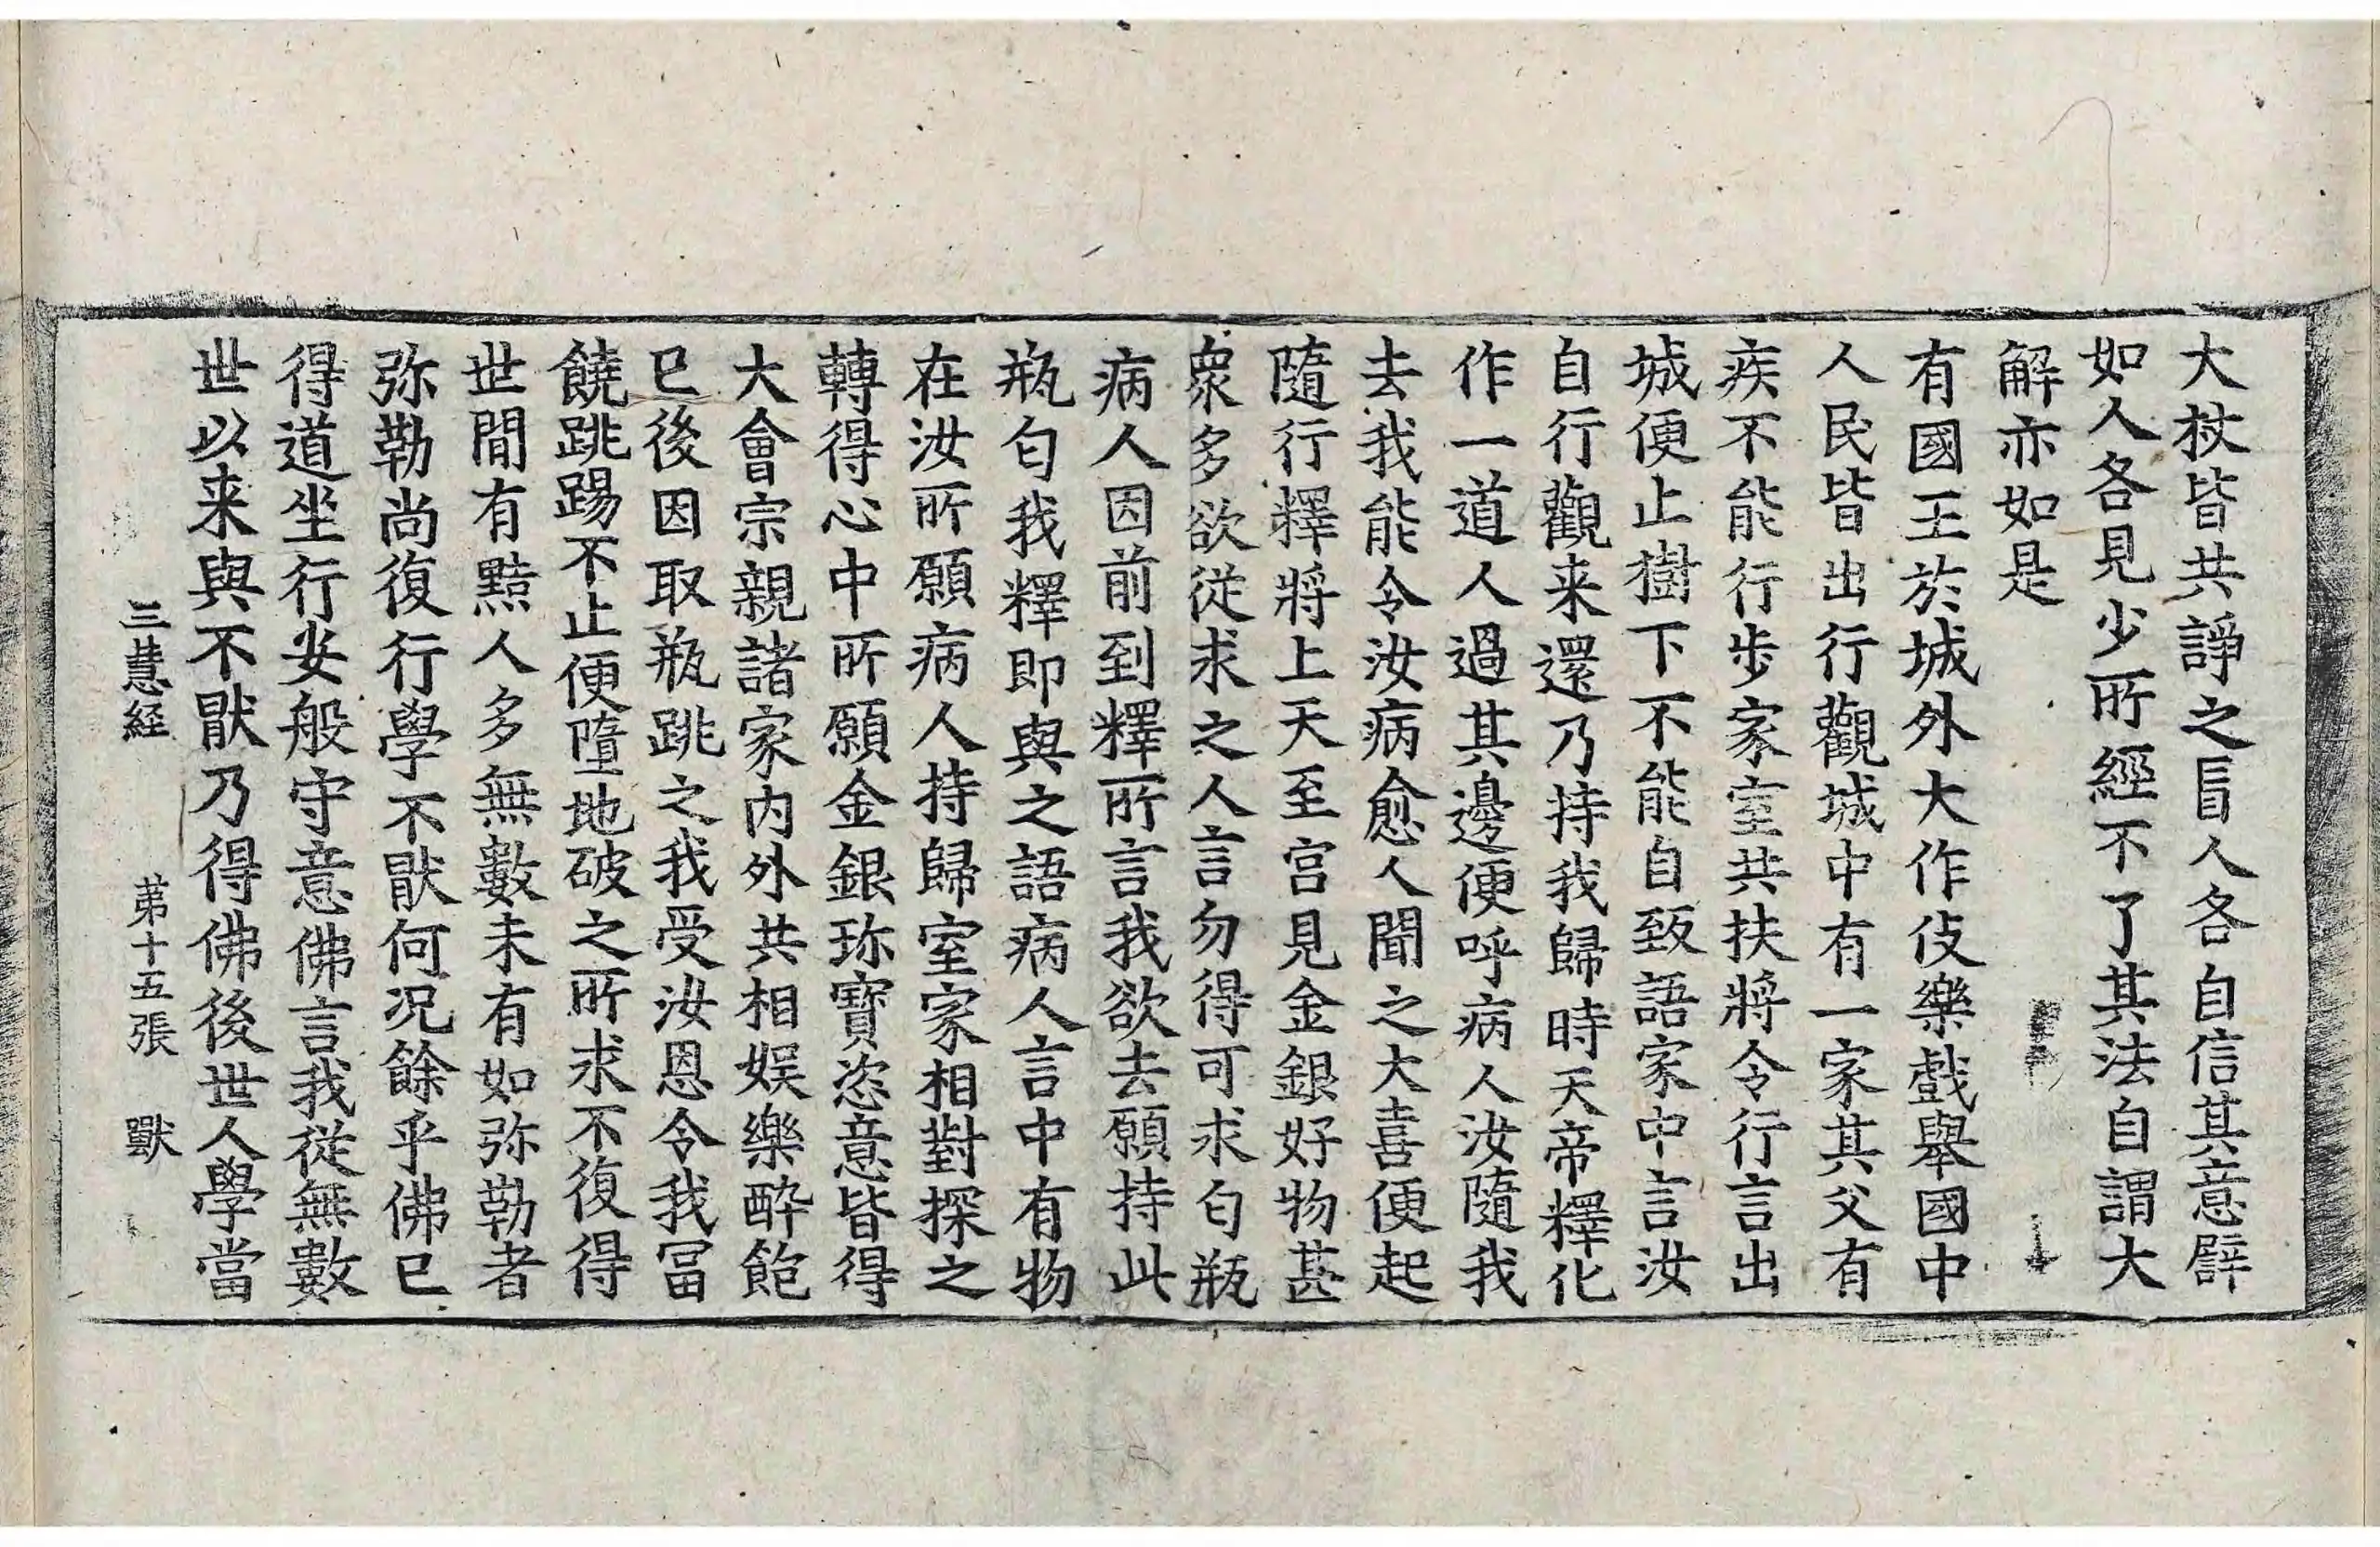 大杖皆共諍之盲人各自信其意譬
如人各見少所經不了其法自謂大
解亦如是
有國王於城外大作伎樂戲舉國中
人民皆出行觀城中有一家其父有
疾不能行步家室共扶將令行言出
城便止樹下不能自致語家中言汝
自行觀来還乃持我歸時天帝釋化
作一道人過其邊便呼病人汝隨我
去我能令汝病愈人聞之大喜便起
隨行釋將上天至宫見金銀好物甚
衆多欲從求之人言勿得可求匂瓶
病人因前到釋所言我欲去願持此
瓶匂我釋即與之語病人言中有物
在汝所願病人持歸室家相對探之
轉得心中所願金銀珎寳恣意皆得
大會宗親諸家内外共相娱樂醉飽
已後因取瓶跳之我受汝恩令我冨
饒跳踢不止便墮地破之所求不復得
世間有黠人多無數未有如弥勒者
弥勒尚復行學不猒何况餘乎佛已
得道坐行安般守意佛言我從無數
世以来與不猒乃得佛後世人學當
三慧経 苐十五張 獸